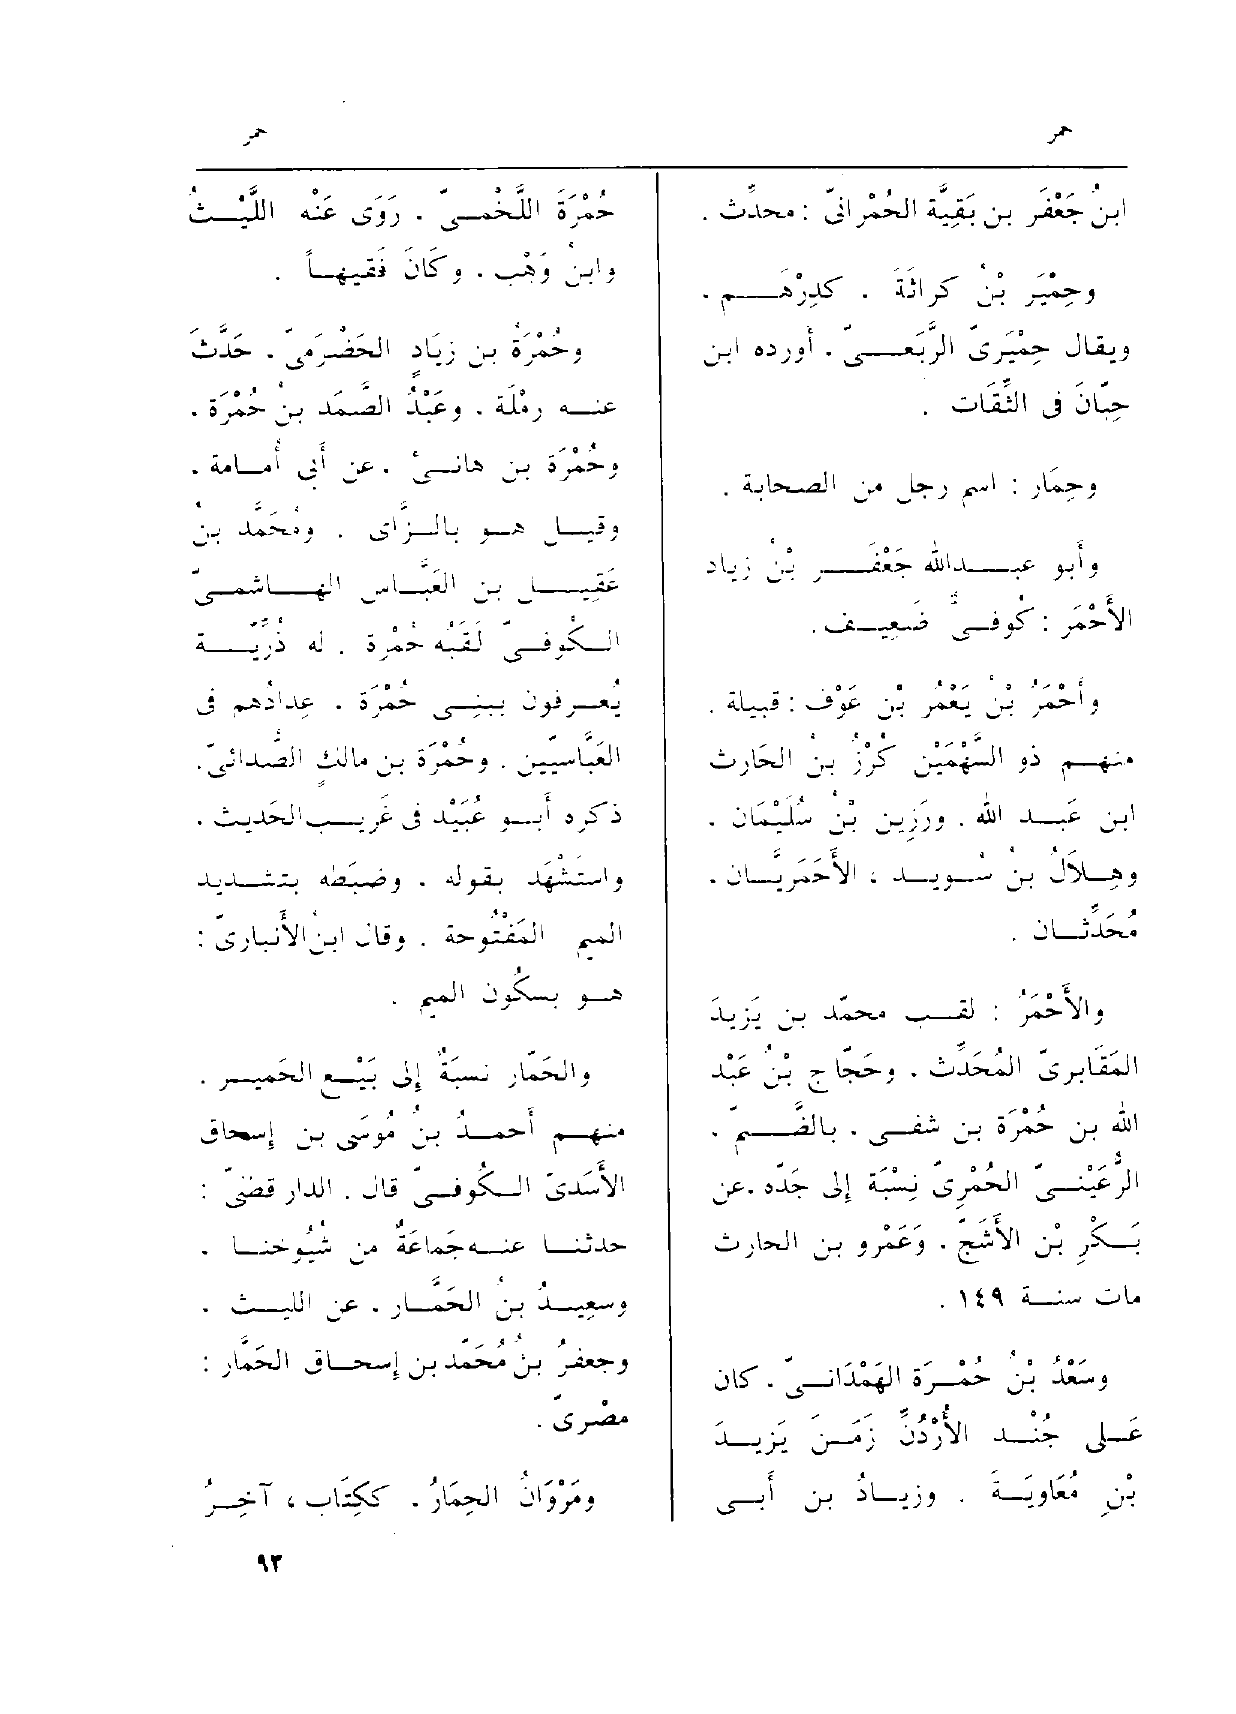 حمر
حمر
ابنُ جَعْفَرِ بن بَقِيَّة الحُمْرانىّ : محدِّث .
وحِمْيَر بْنُ كراثَةَ . كدِرْهَم .
ويقال حِمْيَرِىّ الرَّبَعىّ . أورده ابن
حِبّانَ فى الثِّقَات .
وحِمَار : اسم رجل من الصحابة .
وأَبو عبدالله جَعْفَر بْنُ زياد
الأَحْمَر : كُوفىٌّ ضَعِيف .
وأَحْمَرُ بْنُ يَعْمُر بْنِ عَوْف : قبيلة .
منهم ذو السَّهْمَيْن كُرْزُ بنُ الحَارث
ابن عَبد الله . ورَزِين بْنُ سُلَيْمَان .
وهِلَالُ بنُ سُويد ، الأَحْمَرِيَّان .
مُحَدِّثان .
والأَحْمَرُ : لقب محمّد بن يَزِيدَ
المَقَابرىّ المُحَدِّث . وحَجّاج بْنُ عَبْد
الله بن حُمْرَة بن شفى . بالضَّمّ .
الرُّعَيْنىّ الحُمْرِىّ نِسْبَة إلى جَدّه . عن
بَكْرِ بْنِ الأَشَجّ . وَعَمْرو بن الحارث
مات سنة ١٤٩ .
وسَعْدُ بْنُ حُمْرَة الهَمْدَانىّ . كان
عَلى جُنْد الأُرْدُنِّ زَمَنَ يَزيدَ
بْنِ مُعَاوِيَةَ . وزيادُ بن أَبى
حُمْرَةَ اللَّخْمىّ . رَوَى عَنْه اللَّيْثُ
وابنُ وَهْب . وكَانَ فَقِيهاً .
وحُمْرَةُ بن زيَادٍ الحَضْرَمىّ . حَدَّثَ
عنه رمْلَة . وعَبْدُ الصَّمَد بنُ حُمْرَة .
وحُمْرَة بن هانىء . عن أَبى أُمامة .
وقيل هو بالزَّاى . ومُحَمَّد بنُ
عَقِيل بن العَبَّاس الهاشمىّ
الكُوفىّ لَقَبُه حُمْرَة . له ذُرِّيّة
يُعرفون ببَنِى حُمْرَة . عِدادُهم فى
العَبَّاسيّين . وحُمْرَة بن مالك الصُّدائىّ .
ذكره أَبو عُبَيْد فى غَرِيب الحَديث .
واسْتَشْهَد بقوله . وضَبَطَه بتشديد
الميم المَفْتُوحَة . وقال ابنُ الأَنبارىّ :
هو بسكُون الميم .
والحَمّار نسبَةٌ إلى بَيْع الحَمير .
منهم أَحمدُ بنُ مُوسَى بن إسحاق
الأَسَدىّ الكُوفىّ قال . الدار قطنىّ :
حدثنا عنه جَماعَةٌ من شُيُوخنا .
وسعِيدُ بنُ الحَمَّار . عن الليث .
وجعفرُ بنُ مُحَمّد بن إسحاق الحَمَّار :
مصْرىّ .
ومَرْوَانُ الحِمَارُ . ككِتَاب ، آخِرُ
٩٣